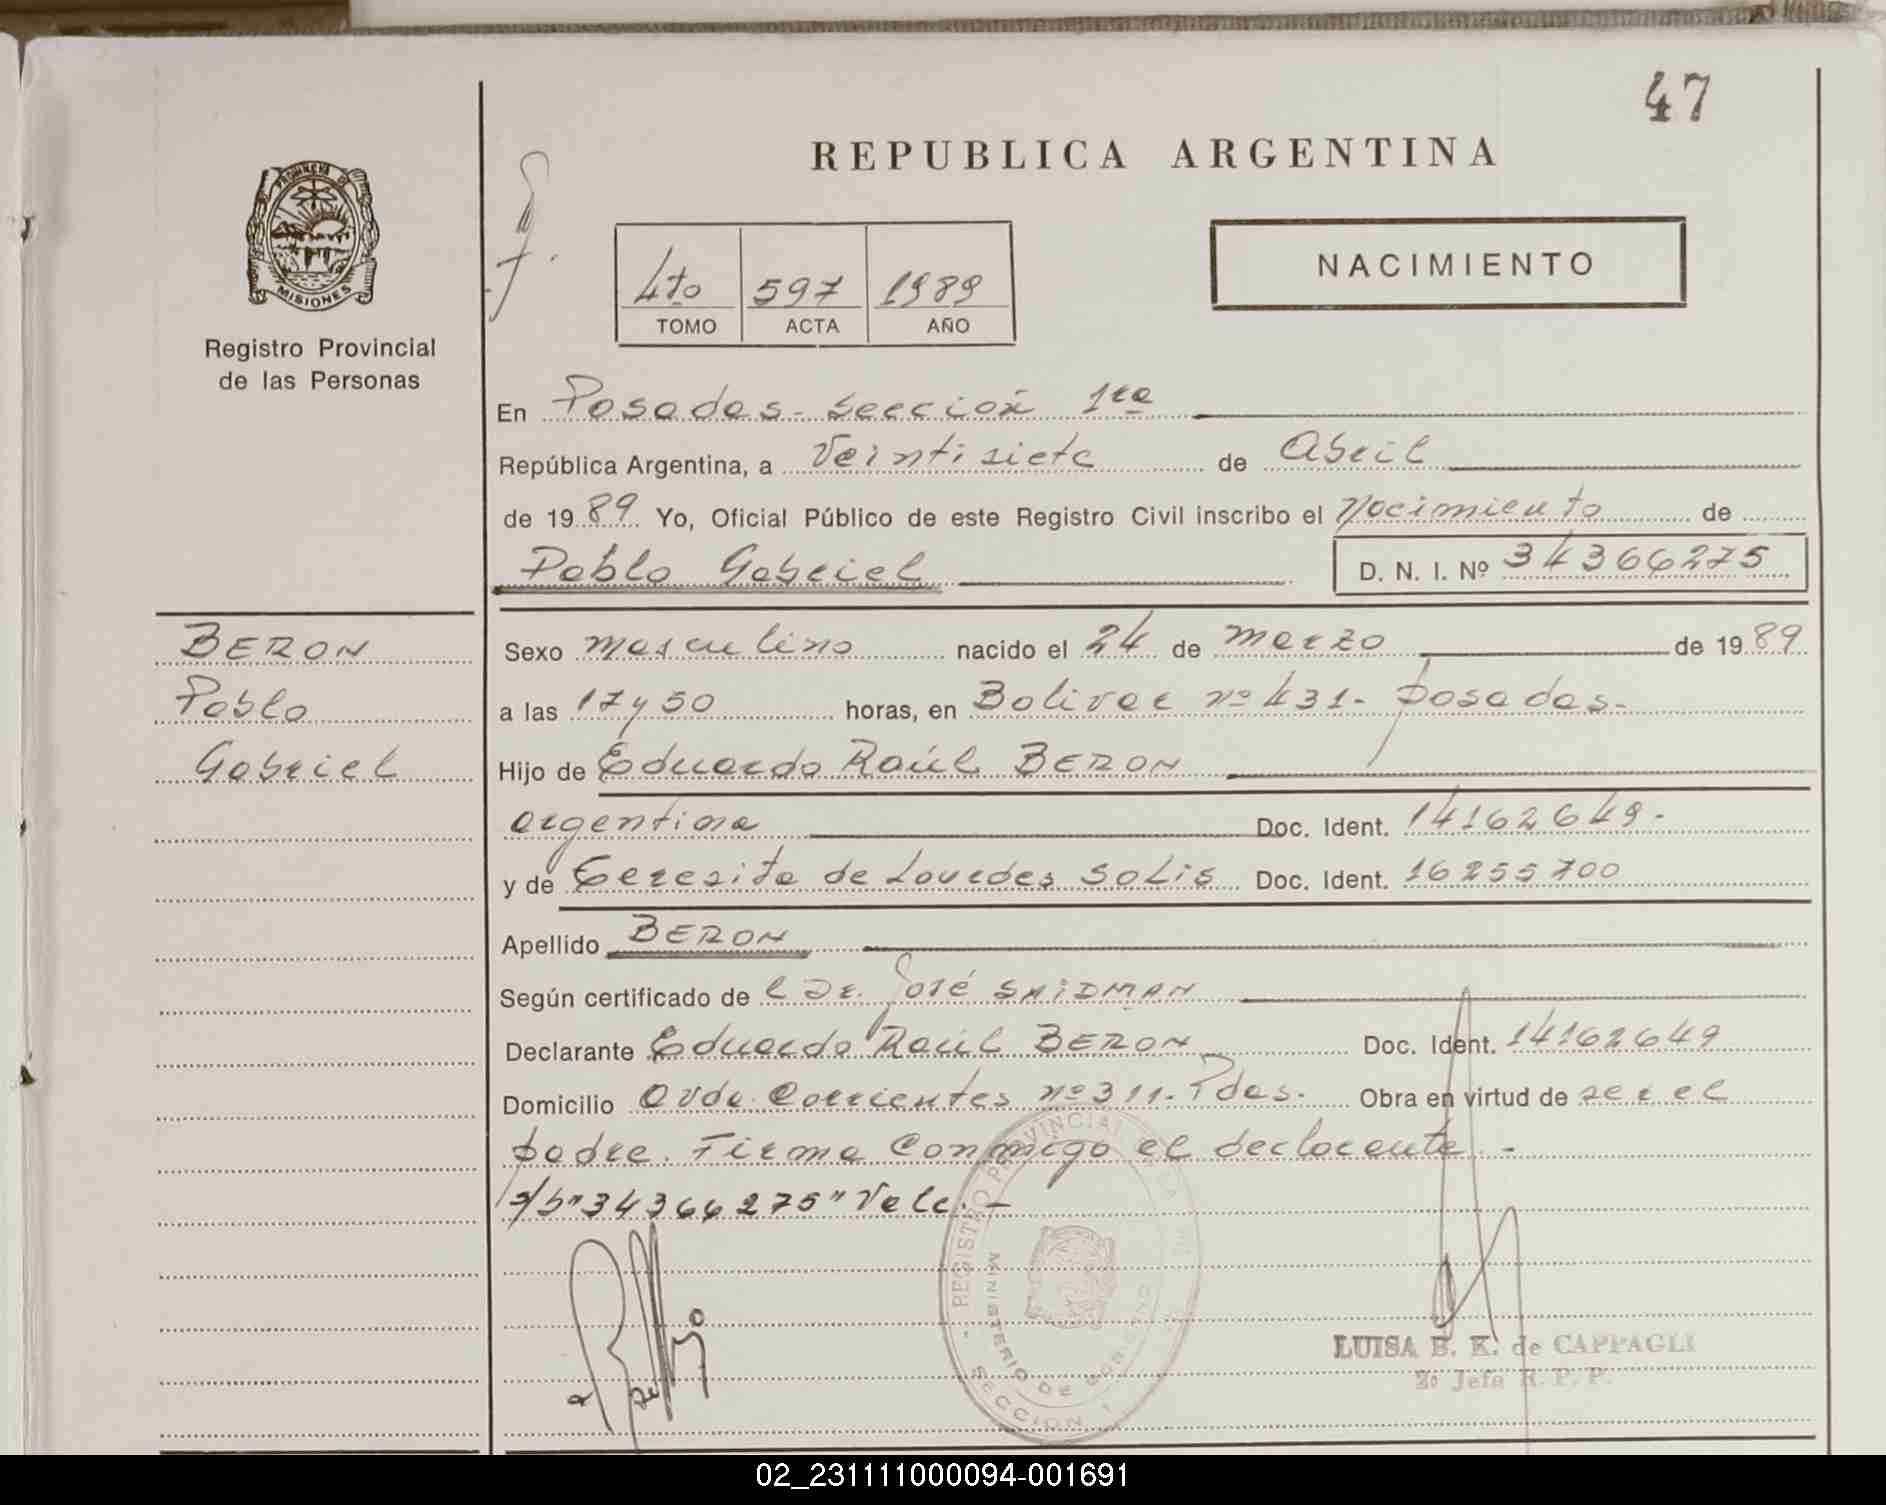 47
REPUBLICA ARGENTINA
PROVINCIA DE
MISIONES
Registro Provincial
de las Personas
4to 597 1989
TOMO ACTA AÑO
NACIMIENTO
En Posadas - Sección 1ra
República Argentina, a Veintisiete de Abril
de 1989 Yo, Oficial Público de este Registro Civil inscribo el Nacimiento de
Pablo Gabriel D. N. I. Nº 34366275
BERON
Pablo
Gabriel
Sexo masculino nacido el 24 de marzo de 1989
a las 17 y 50 horas, en Bolivar nº 431 - Posadas.-
Hijo de Eduardo Raúl BERON
argentina Doc. Ident. 14162649.-
y de Teresita de Lourdes SOLIS Doc. Ident. 16255700
Apellido BERON
Según certificado de l Dr. José SAIDMAN
Declarante Eduardo Raúl BERON Doc. Ident. 14162649
Domicilio Avda. Corrientes nº 311 - Pdas. Obra en virtud de ser el
padre. Firma Conmigo el declarante.-
s/b "34366275" Vale.-
REGISTRO PROVINCIAL DE LAS
MINISTERIO DE GOBIERNO
SECCION 1
LUISA B. K. de CAPPAGLI
2º Jefa R. P. P.
02_231111000094-001691